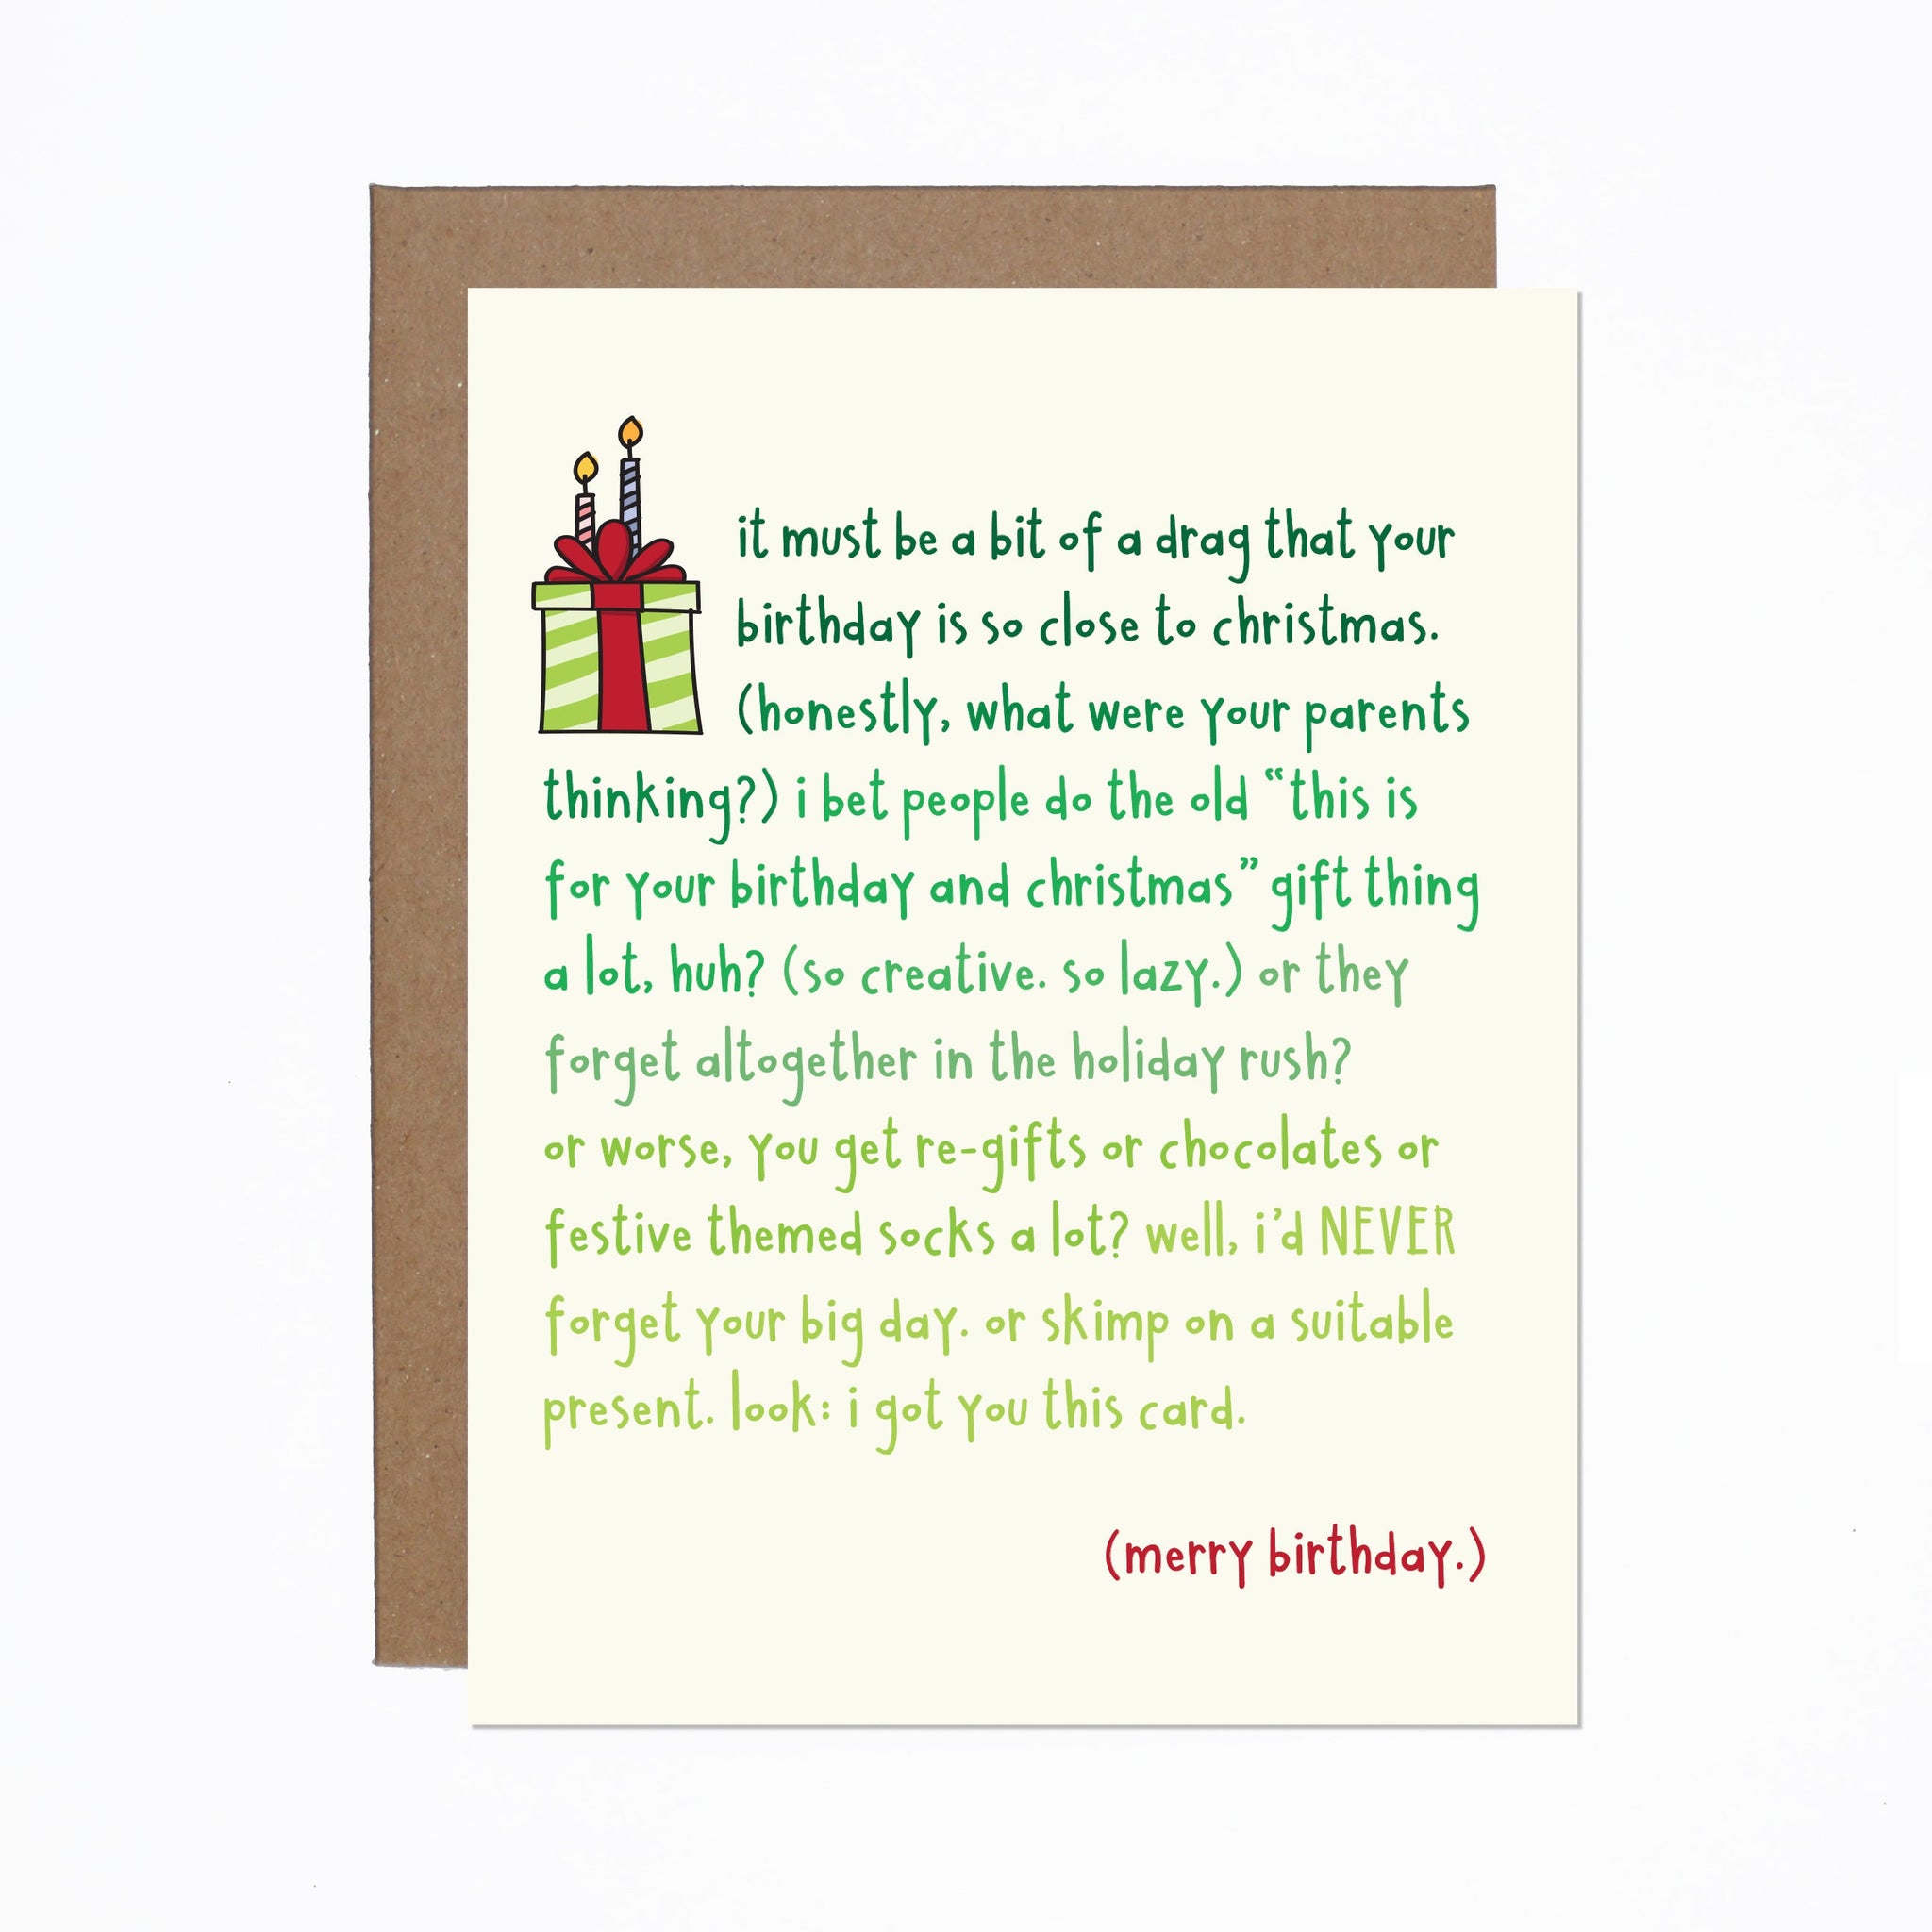 it must be a bit of a drag that your
birthday is so close to christmas.
(honestly, what were your parents
thinking?) i bet people do the old “this is
for your birthday and christmas” gift thing
a lot, huh? (so creative. so lazy.) or they
forget altogether in the holiday rush?
or worse, you get re-gifts or chocolates or
festive themed socks a lot? well, i’d NEVER
forget your big day. or skimp on a suitable
present. look: i got you this card.
(merry birthday.)